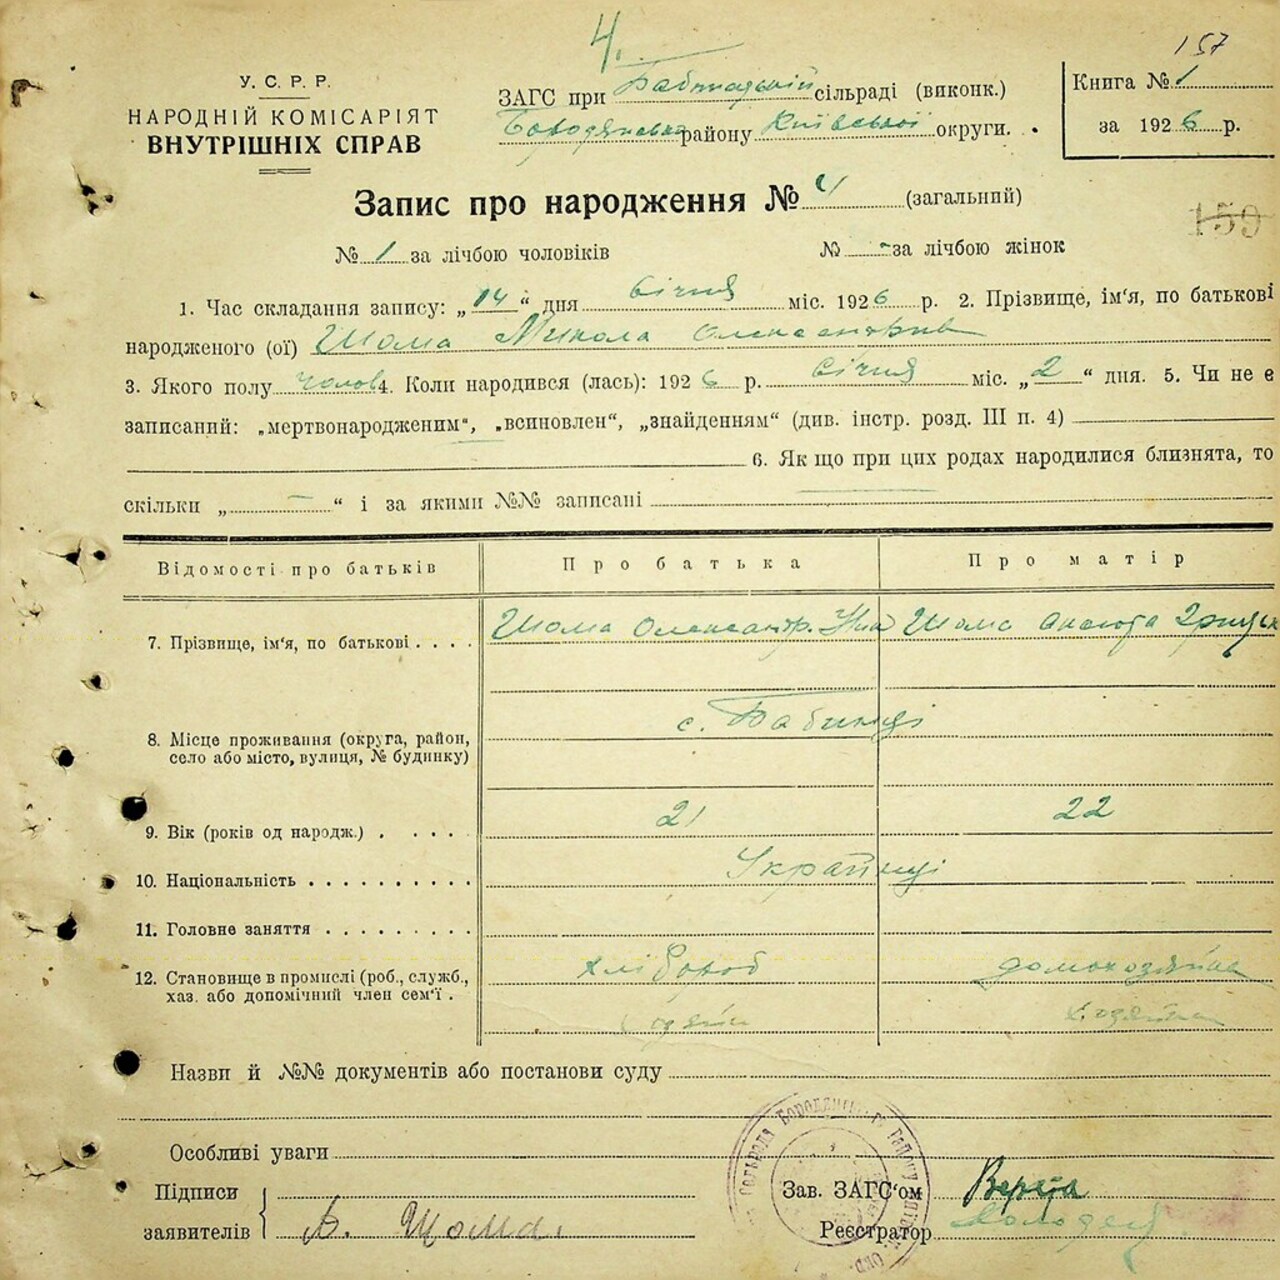 4.
157
У. С. Р. Р.
НАРОДНІЙ КОМІСАРІЯТ
ВНУТРІШНІХ СПРАВ
ЗАГС при Бабинецькій сільраді (виконк.)
Бородянська району Київської округи.
Книга № 1
за 1926 р.
Запис про народження № 4 (загальний)
159
№ 1 за лічбою чоловіків № - за лічбою жінок
1. Час складання запису: „14“ дня Січня міс. 1926 р. 2. Прізвище, ім'я, по батькові
народженого (ої) Шома Микола Олександрів
3. Якого полу чолов 4. Коли народився (лась): 1926 р. Січня міс. „2“ дня. 5. Чи не є
записаний: „мертвонародженим“, „всиновлен“, „знайденням“ (див. інстр. розд. III п. 4)
6. Як що при цих родах народилися близнята, то
скільки „ — “ і за якими №№ записані
Відомості про батьків Про батька Про матір
7. Прізвище, ім'я, по батькові . . . . Шома Олександр. Шома
8. Місце проживання (округа, район,
село або місто, вулиця, № будинку)
с. Бабинці
9. Вік (років од народж.) . . . . . 21 22
10. Національність . . . . . . . . . . Українці
11. Головне заняття . . . . . . . . .
12. Становище в промислі (роб., служб.,
хаз. або допомічний член сем'ї .
хлібороб домохозяйка
Назви й №№ документів або постанови суду
Особливі уваги
Підписи
заявителів
В. Шома.
Зав. ЗАГС'ом
Реєстратор